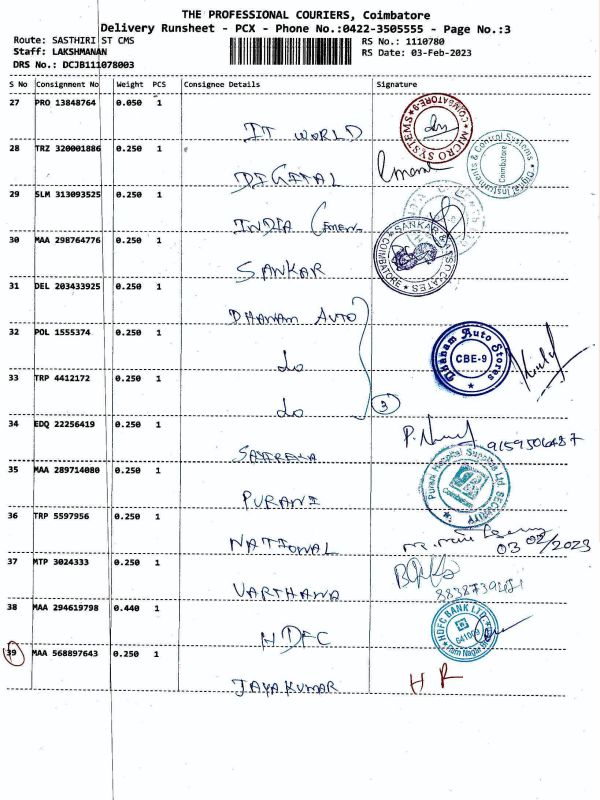 THE PROFESSIONAL COURIERS, Coimbatore
Delivery Runsheet - PCX - Phone No.:0422-3505555 - Page No.:3
Route: SASTHIRI ST CMS RS No.: 1110780
Staff: LAKSHMANAN RS Date: 03-Feb-2023
DRS No.: DCJB111078003
S No Consignment No Weight PCS Consignee Details Signature
27 PRO 13848764 0.050 1
IT WORLD
MICRO SYSTEMS COIMBATORE-9
28 TRZ 320001886 0.250 1
DIGITAL
Digital Instruments & Control Systems Coimbatore
29 SLM 313093525 0.250 1
INDIA Cemen
30 MAA 298764776 0.250 1
SANKAR
SANKAR & ASSOCIATES COIMBATORE
31 DEL 203433925 0.250 1
DHANAM AUTO
32 POL 1555374 0.250 1
do
Dhanam Auto Stores CBE-9
33 TRP 4412172 0.250 1
do
3
34 EDQ 22256419 0.250 1
P.
9159506487
35 MAA 289714080 0.250 1
PURANI
Purani Hospital Supplies Ltd. SECURITY Coimbatore
36 TRP 5597956 0.250 1
NATIONAL
03 02/2023
37 MTP 3024333 0.250 1
VARTHANA
38 MAA 294619798 0.440 1
HDFC
HDFC BANK LTD. 641009 Ram Nagar
39 MAA 568897643 0.250 1
JAYAKUMAR
H R